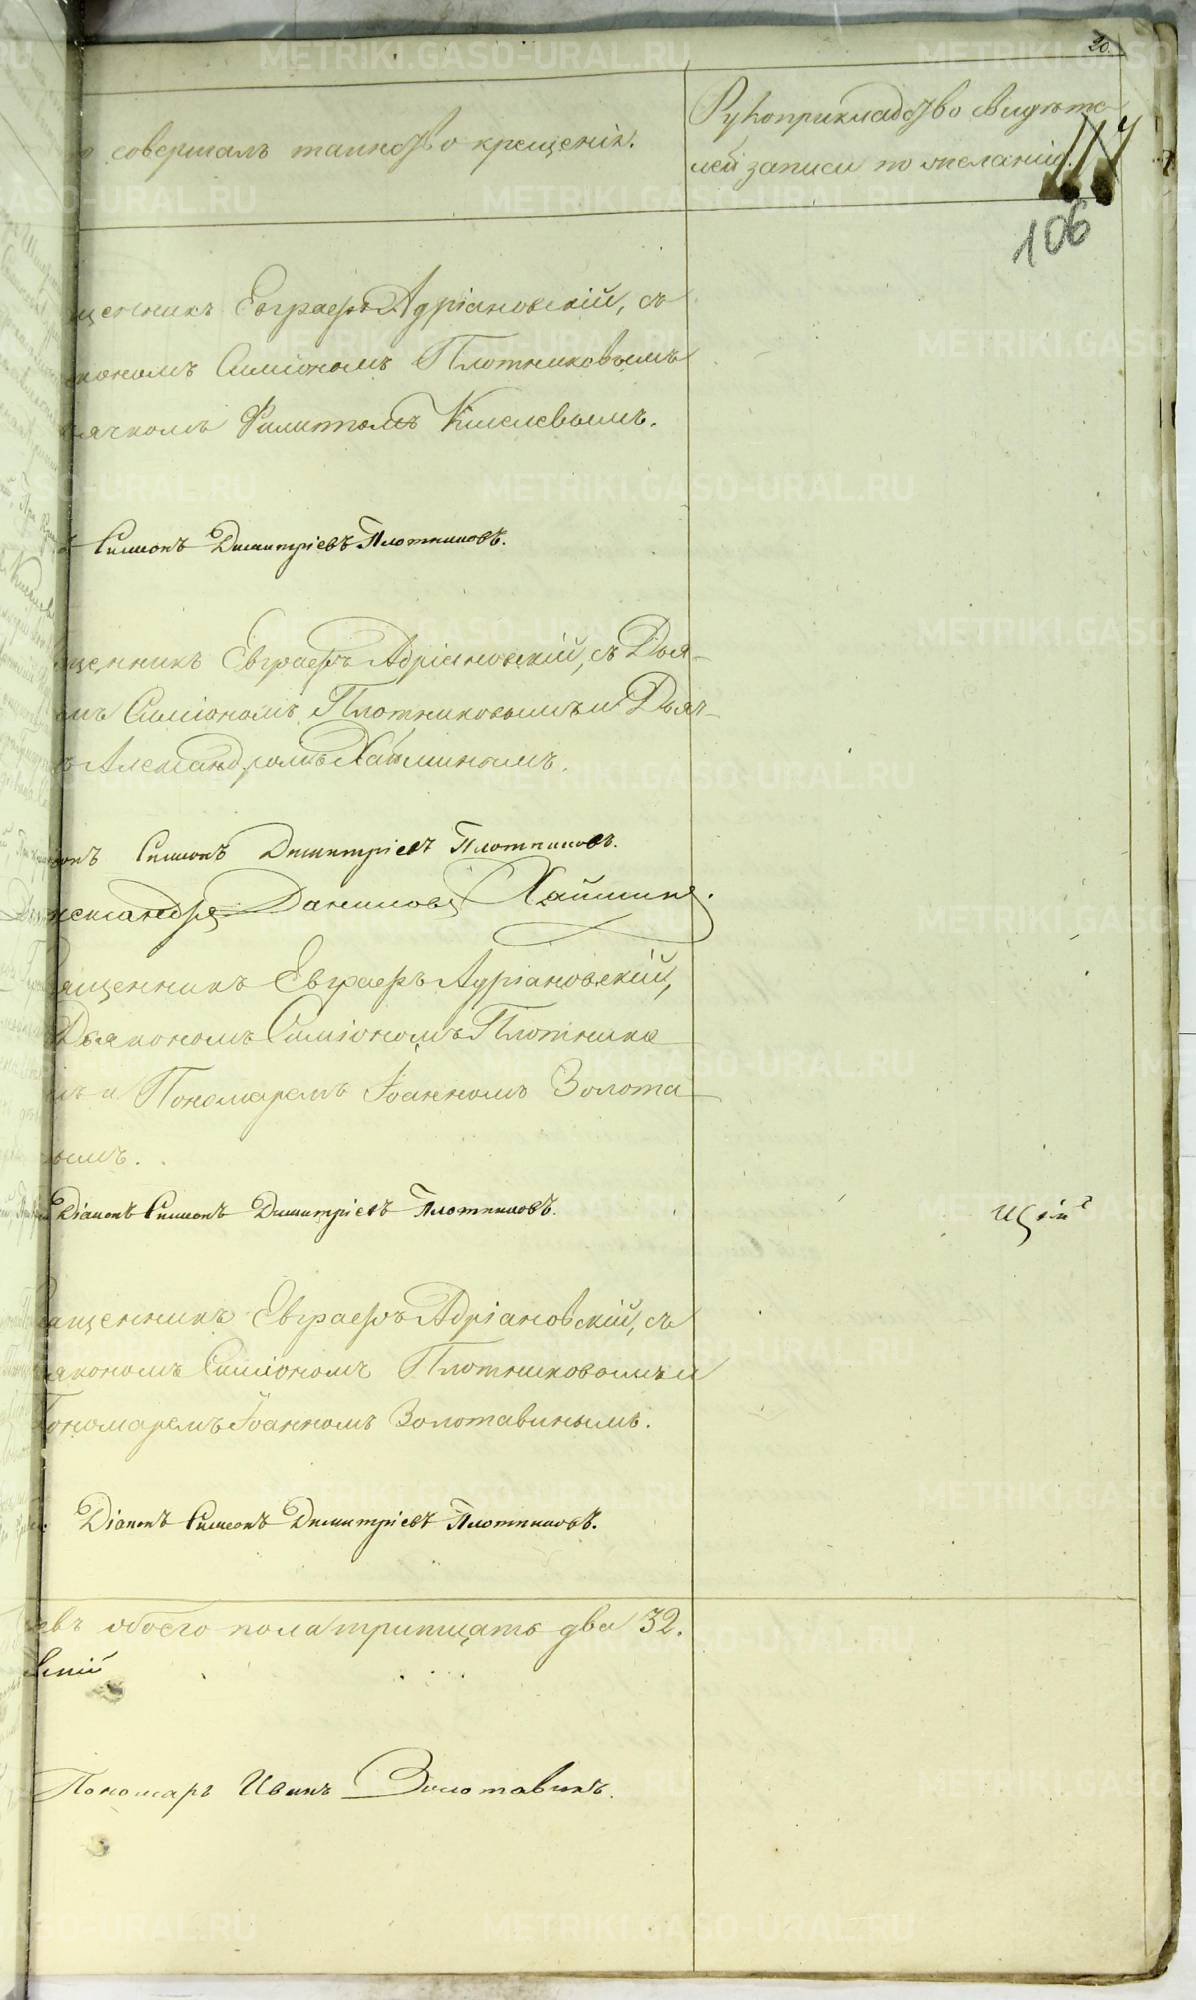 20.
о совершалъ таинство крещенія.
Рукоприкладство свидѣте-
лей записи по желанію.
114
106
щенникъ Евграфъ Адріановскій, съ
кономъ Симіономъ Плотниковымъ
ячкомъ Филитомъ Киселевымъ.
Симеонъ Димитріевъ Плотниковъ.
щенникъ Евграфъ Адріановскій, съ Дья-
омъ Симіономъ Плотниковымъ и Дьяч-
Александромъ Хайминымъ.
конъ Симеонъ Димитріевъ Плотниковъ.
лександръ Даниловъ Хайминъ.
ященникъ Евграфъ Адріановскій,
Дьякономъ Симіономъ Плотнико
ъ и Пономаремъ Іоанномъ Золота-
ымъ.
Діаконъ Симеонъ Димитріевъ Плотниковъ.
Цій
ященникъ Евграфъ Адріановскій, съ
якономъ Симіономъ Плотниковымъ и
Пономаремъ Іоанномъ Золотавинымъ.
Діаконъ Симеонъ Димитріевъ Плотниковъ.
въ обоего пола тритцать два 32.
вскій
Пономарь Иванъ Золотавинъ.
METRIKI.GASO-URAL.RU